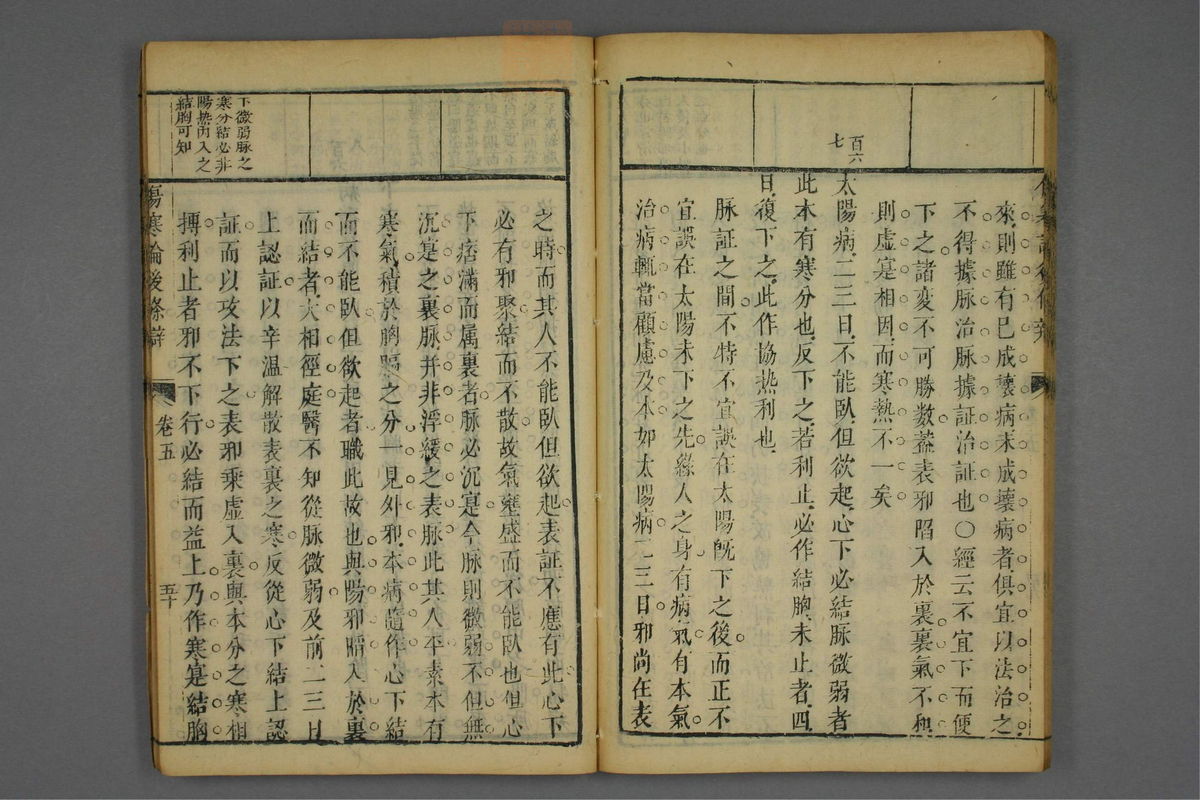 百六
七
來則雖有已成壞病未成壞病者俱宜以法治之
不得據脉治脉據証治証也〇經云不宜下而便
下之諸變不可勝數葢表邪陷入於裏裏氣不和
則虛寔相因而寒熱不一矣
太陽病二三日不能臥但欲起心下必結脉微弱者
此本有寒分也反下之若利止必作結胸未止者四
日復下之此作協热利也
脉証之間不特不宜誤在太陽旣下之後而正不
宜誤在太陽未下之先緣人之身有病氣有本氣
治病輒當顧慮及本如太陽病二三日邪尚在表
下微弱脉之
寒分結必非
陽热內入之
結胸可知
之時而其人不能臥但欲起表証不應有此心下
必有邪聚結而不散故氣壅盛而不能臥也但心
下痞滿而属裏者脉必沉寔今脉則微弱不但無
沉寔之裏脉并非浮緩之表脉此其人平素本有
寒氣積於胸膈之分一見外邪本病隨作心下結
而不能臥但欲起者職此故也與陽邪陷入於裏
而結者大相徑庭醫不知從脉微弱及前二三日
上認証以辛温解散表裏之寒反從心下結上認
証而以攻法下之表邪乘虛入裏與本分之寒相
搏利止者邪不下行必結而益上乃作寒寔結胸
傷寒論後條辯
卷五
五十